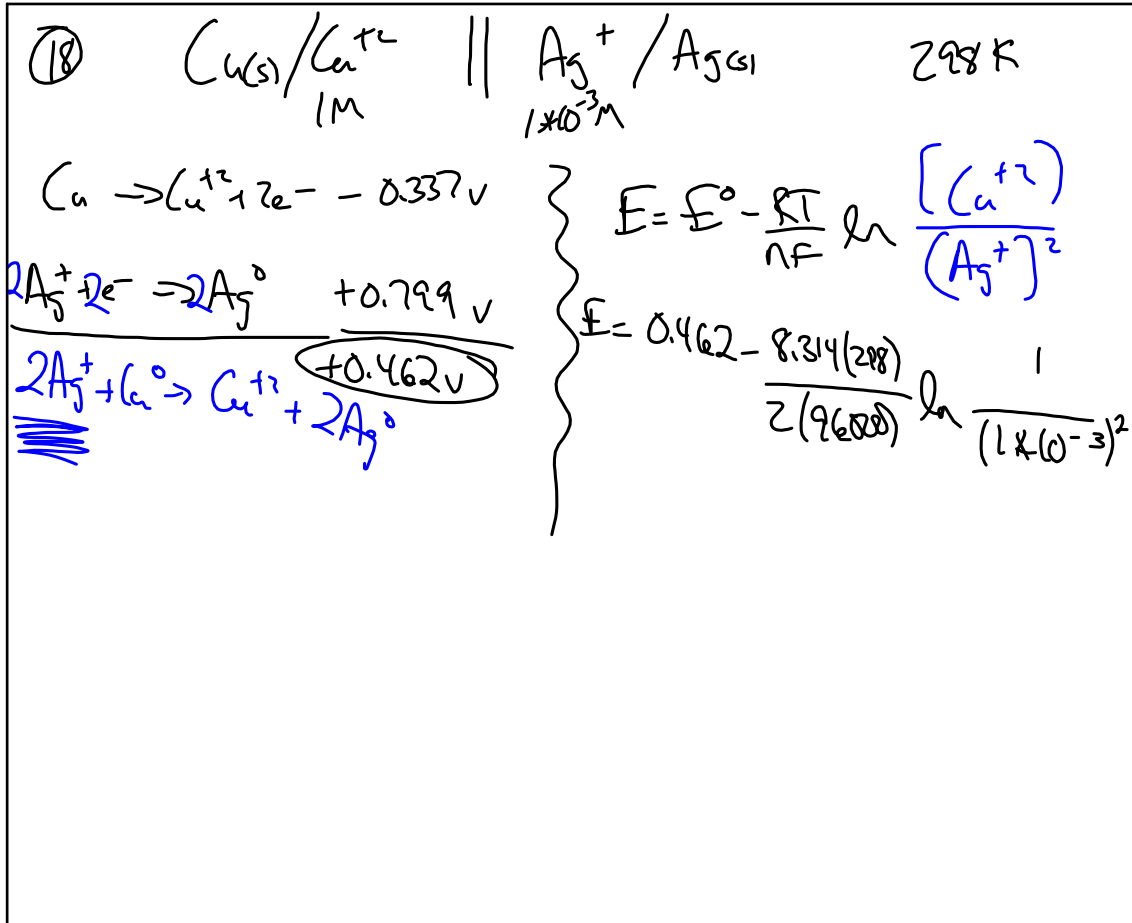 18 Cu(s)/Cu⁺² || Ag⁺/Ag(s) 298 K
1M 1*10⁻³M
Cu → Cu⁺² + 2e⁻ - 0.337 v
2Ag⁺ + 2e⁻ → 2Ag⁰ +0.799 v
+0.462 v
2Ag⁺ + Cu⁰ → Cu⁺² + 2Ag⁰
E = E⁰ - RT/nF ln [Cu⁺²]/[Ag⁺]²
E = 0.462 - 8.314(298)/2(96500) ln 1/(1*10⁻³)²